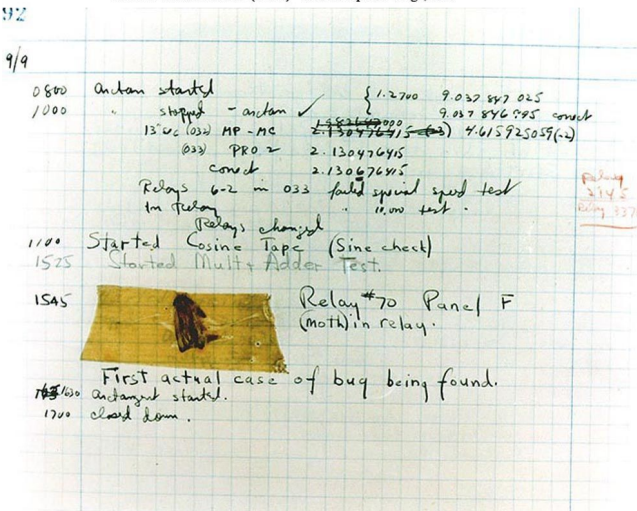 92
9/9
0800 arctan started { 1.2700 9.037 847 025
1000 " stopped - arctan ✓ 9.037 846 795 conect
13" uc (032) MP - MC 2.130476415 4.615925059(-2)
(033) PRO 2 2.130476415
conect 2.130676415
Relays 6-2 in 033 failed special speed test
In Relay " 10.000 test .
Relays changed
Relay
2145
Relay 337
1100 Started Cosine Tape (Sine check)
1525 Started Mult + Adder Test.
1545 Relay #70 Panel F
(moth) in relay.
First actual case of bug being found.
1630 arctangent started.
1700 closed down.